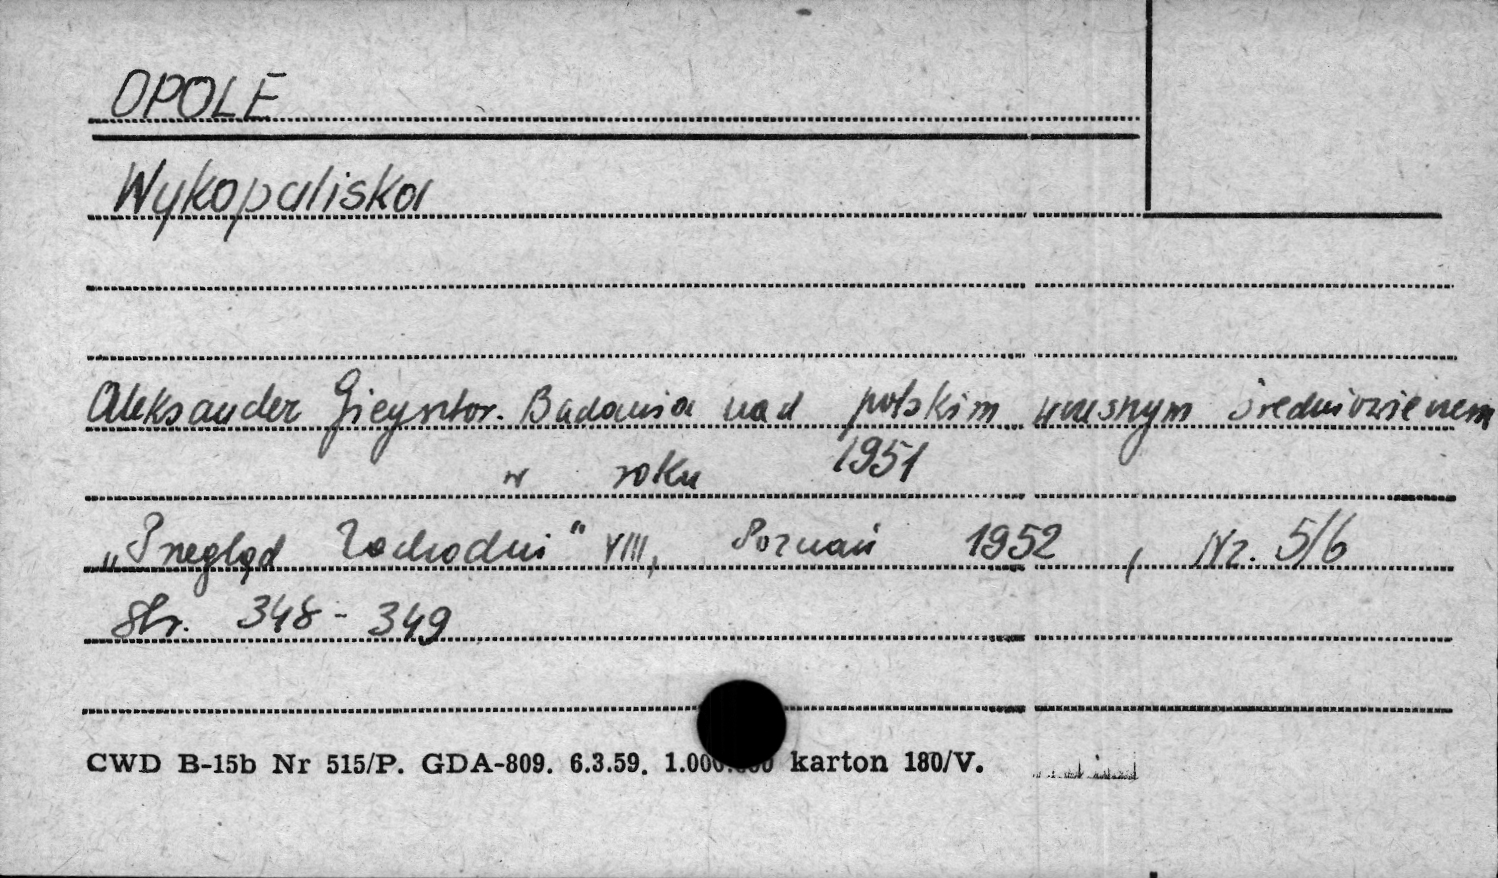 OPOLE
Wykopaliska
Aleksander Gieysztor. Badania nad polskim wczesnym średniowieczem
w roku 1951
„Przegląd Zachodni" VIII, Poznań 1952, Nr. 5/6
Str. 348-349
CWD B-15b Nr 515/P. GDA-809. 6.3.59. karton 180/V.